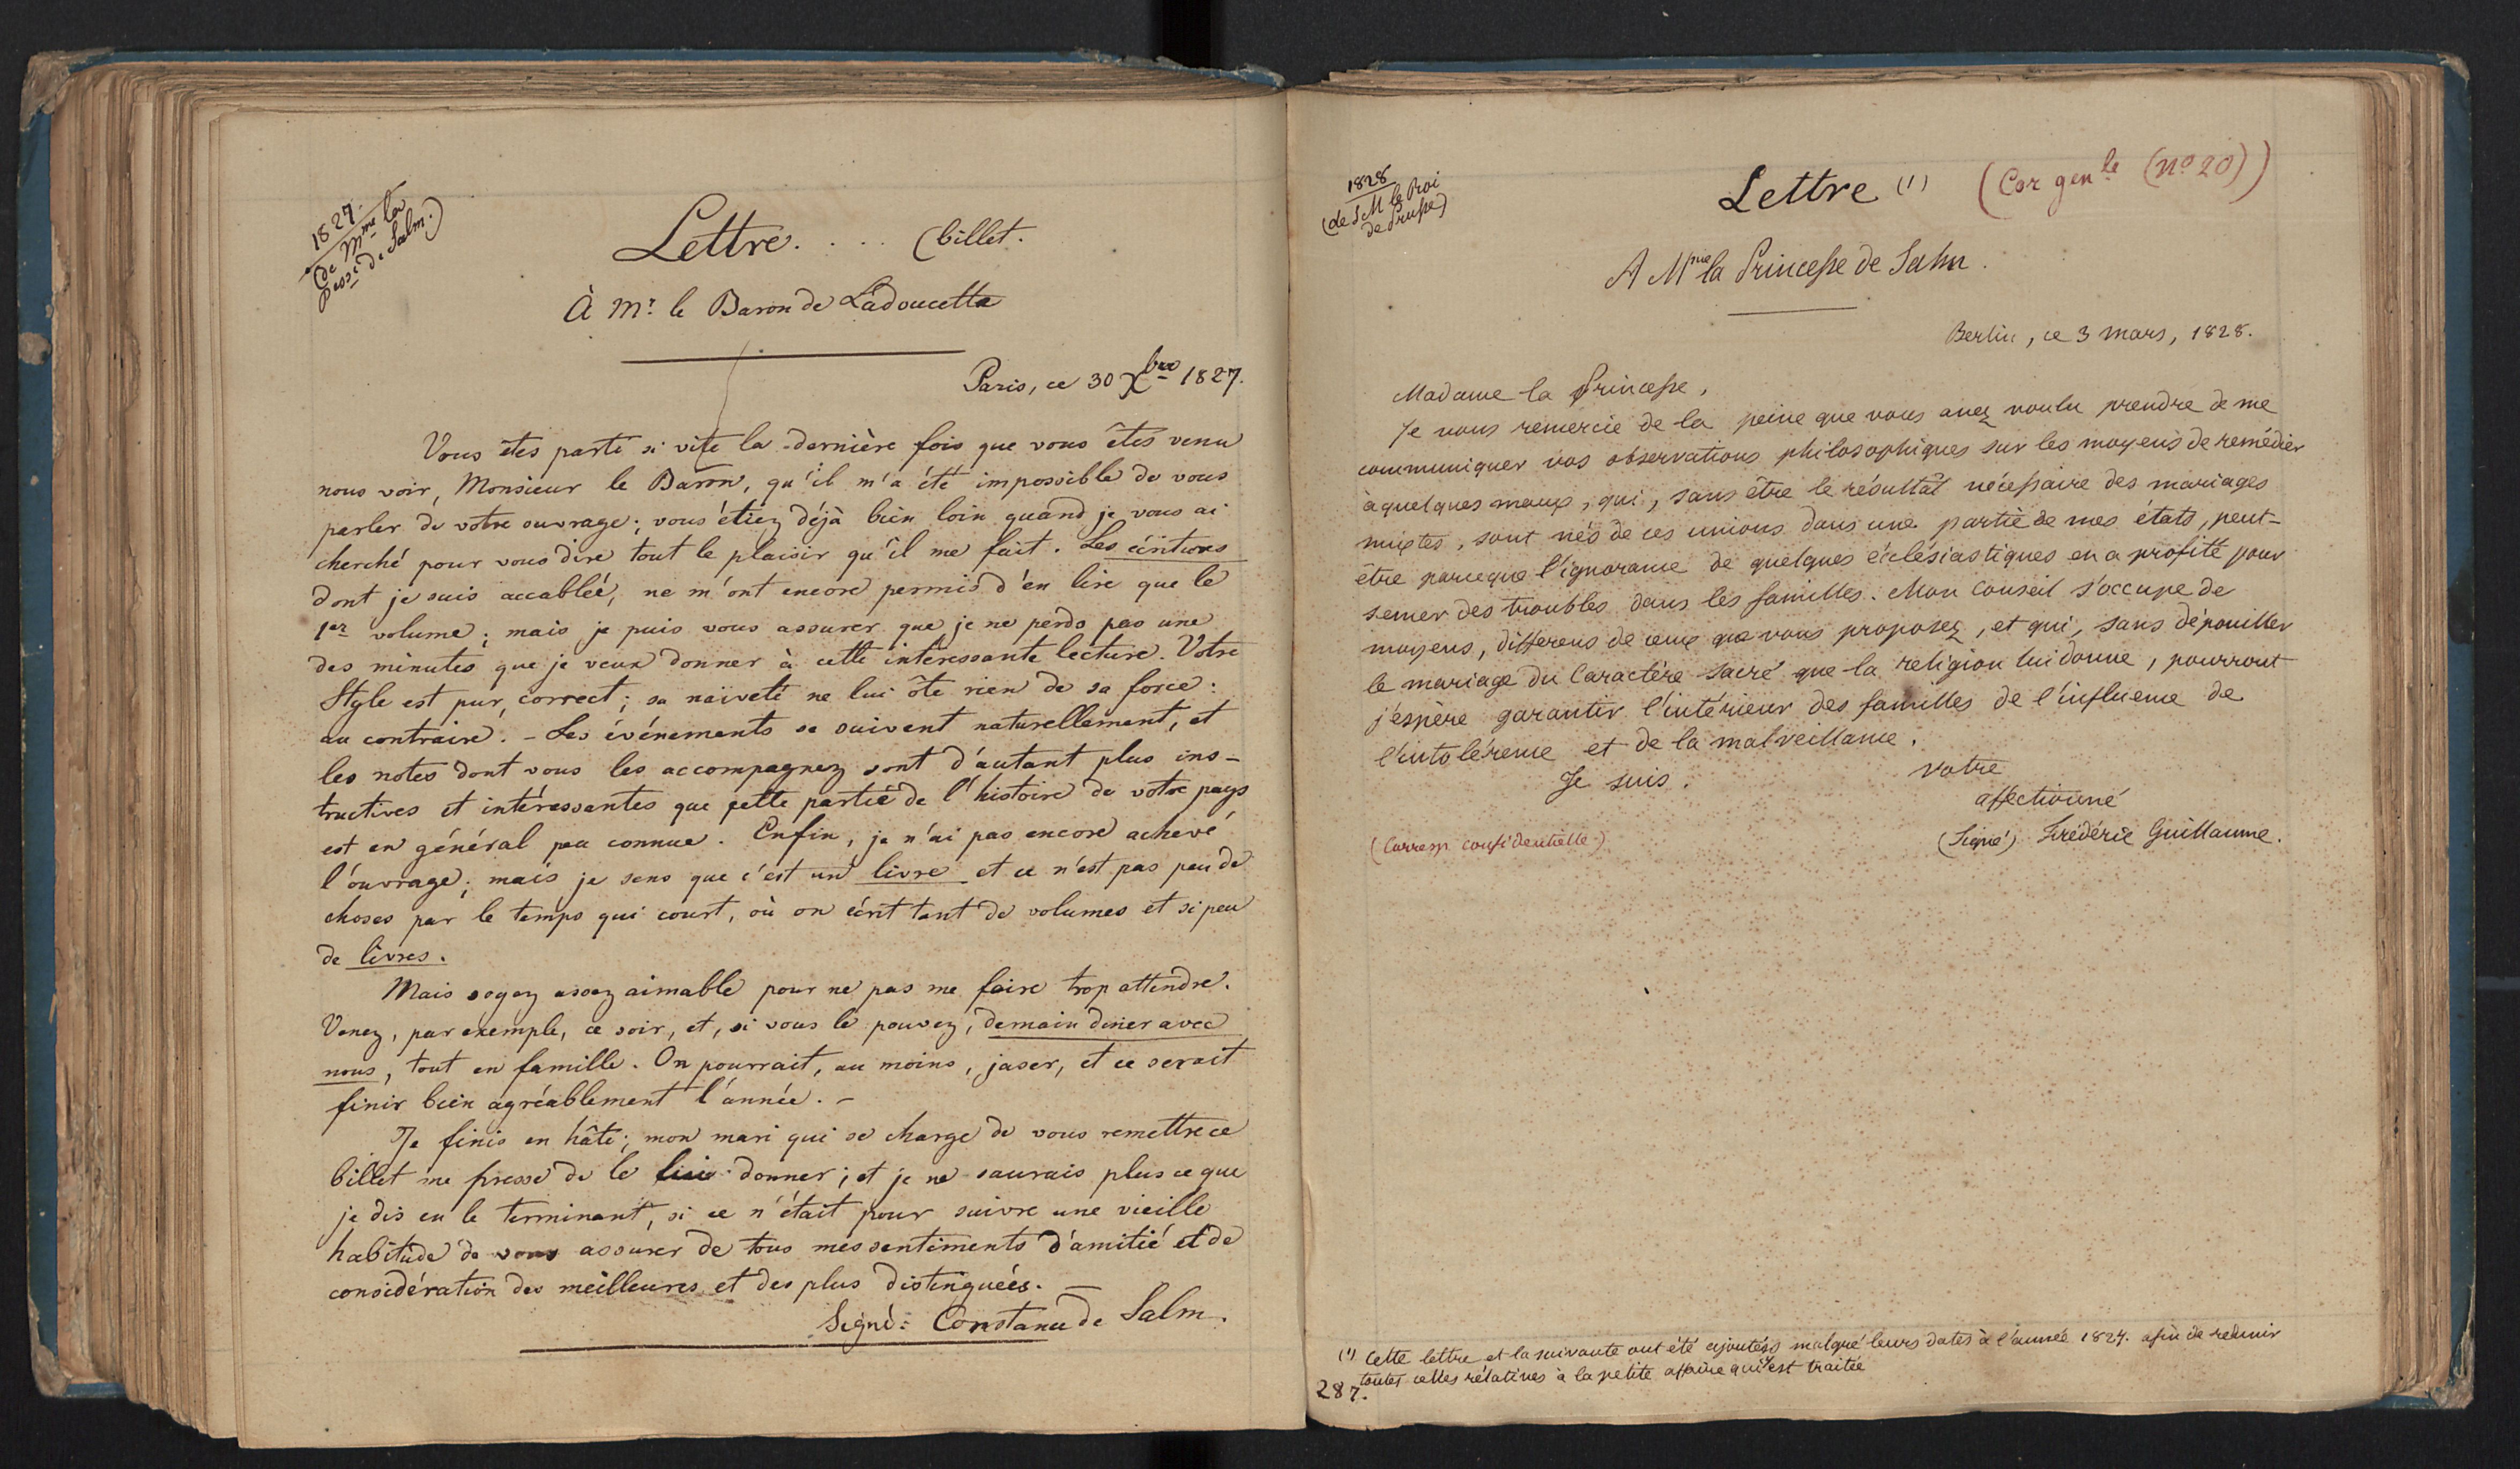 1827.
(de Mme la
Pesse de Salm.)
Lettre. . . . (billet.
À Mr. le Baron de Ladoucette
Paris, ce 30 Xbre 1827.
Vous êtes parti si vite la dernière fois que vous êtes venu
nous voir, Monsieur le Baron, qu'il m'a été impossible de vous
parler de votre ouvrage; vous étiez déjà bien loin quand je vous ai
cherché pour vous dire tout le plaisir qu'il me fait. Les écritures
dont je suis accablée, ne m'ont encore permis d'en lire que le
1er volume; mais je puis vous assurer que je ne perds pas une
des minutes que je veux donner à cette intéressante lecture. Votre
Style est pur, correct; sa naïveté ne lui ôte rien de sa force:
au contraire. - Les événements se suivent naturellement, et
les notes dont vous les accompagnez sont d'autant plus ins-
tructives et intéressantes que cette partie de l'histoire de votre pays
est en général peu connue. Enfin, je n'ai pas encore achevé
l'ouvrage; mais je sens que c'est un livre et ce n'est pas peu de
choses par le temps qui court, où on écrit tant de volumes et si peu
de livres.
Mais soyez assez aimable pour ne pas me faire trop attendre.
Venez, par exemple, ce soir, et, si vous le pouvez, demain diner avec
nous, tout en famille. On pourrait, au moins, jaser, et ce serait
finir bien agréablement l'année. -
Je finis en hâte; mon mari qui se charge de vous remettre ce
billet me presse de le lui donner; et je ne saurais plus ce que
je dis en le terminant, si ce n'était pour suivre une vieille
habitude de vous assurer de tous mes sentiments d'amitié et de
considération des meilleures et des plus distinguées. —
Signé: Constance de Salm.
1828
(de S M le Roi
de Prusse)
Lettre (1) (Cor genle (no 20))
A Mme la Princesse de Salm.
Berlin, ce 3 mars, 1828.
Madame la Princesse,
Je vous remercie de la peine que vous avez voulu prendre de me
communiquer vos observations philosophiques sur les moyens de remédier
à quelques maux, qui, sans être le résultat nécessaire des mariages
mixtes, sont nés de ces unions dans une partie de mes états, peut-
être parceque l'ignorance de quelques écclésiastiques en a profité pour
semer des troubles dans les familles. Mon Conseil s'occupe de
moyens, différens de ceux que vous proposez, et qui, sans dépouiller
le mariage du Caractère sacré que la religion lui donne, pourront
j'espère garantir l'intérieur des familles de l'influence de
l'intolérence et de la malveillance.
Je suis. votre
affectionné
(Corresp confidentielle.) (Signé) Frédéric Guillaume.
(1) Cette lettre et la suivante ont été ajoutées malgré leurs dates à l'année 1827. afin de réunir
toutes celles rélatives à la petite affaire qui y est traitée
287.